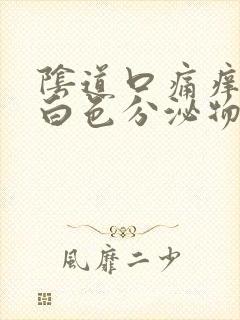 陰道口痛痒
白色分泌物
風靡二少